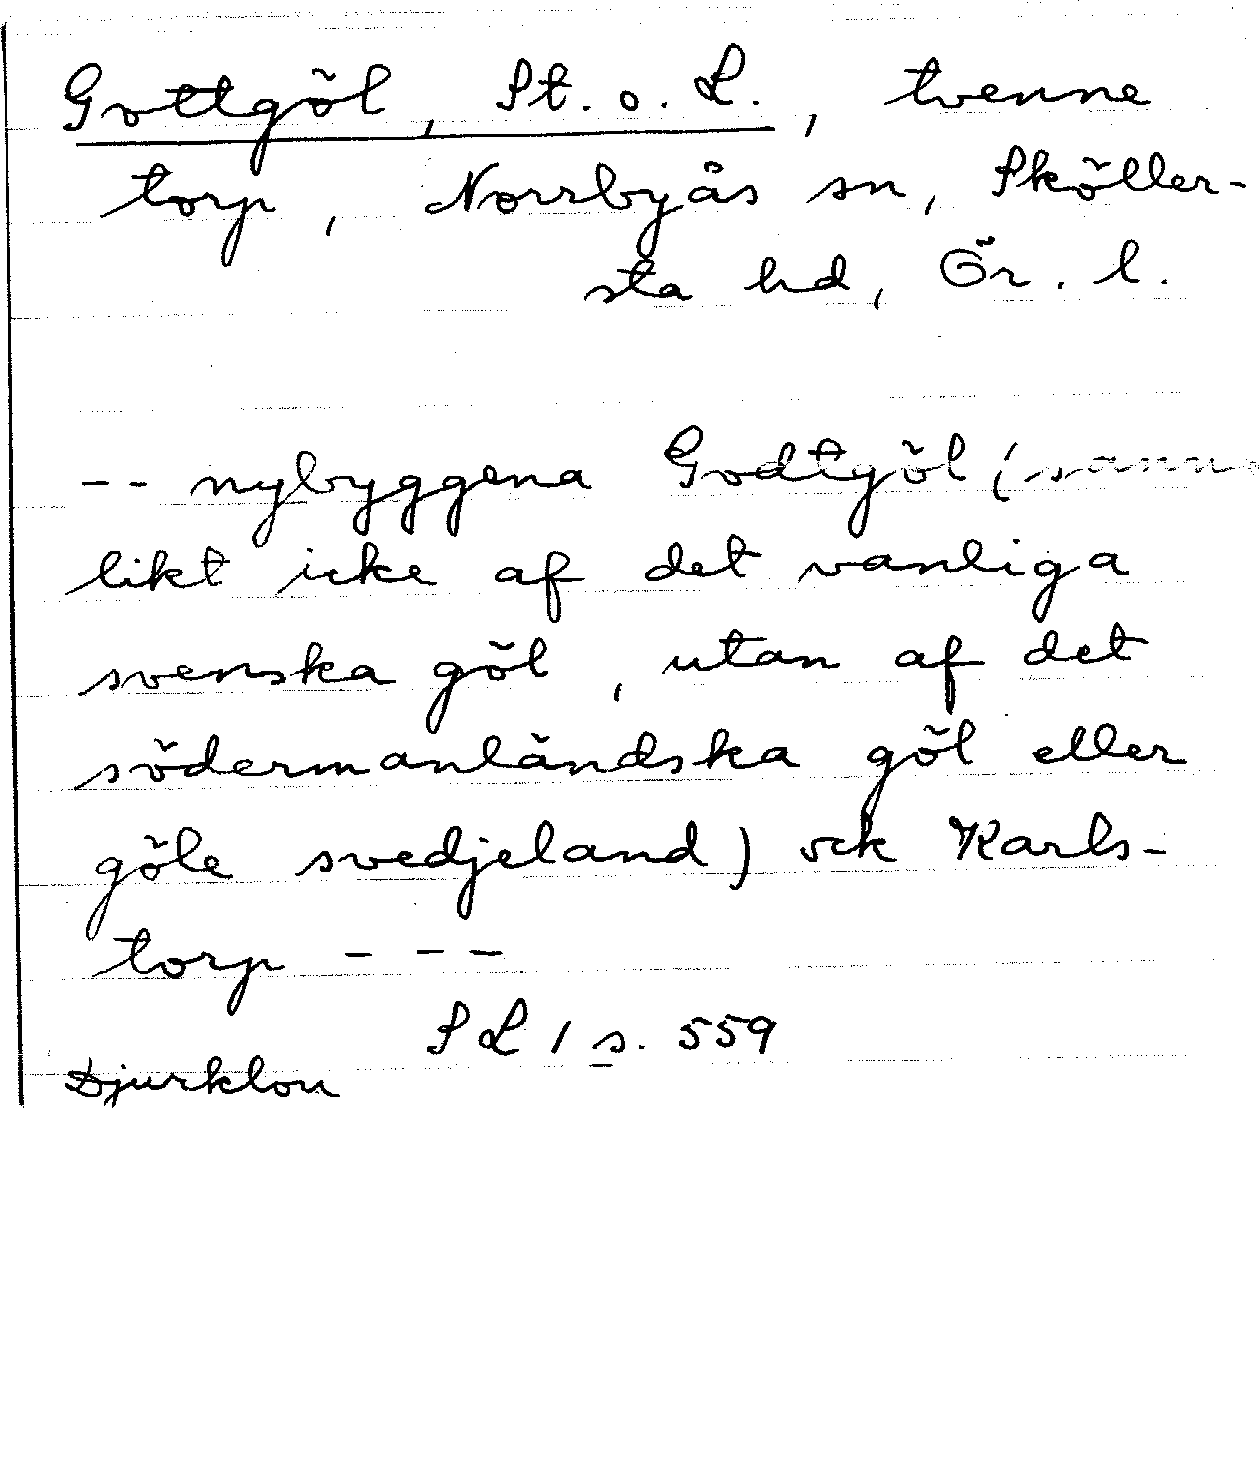 Gottgöl, St. o. L., tvenne
torp, Norrbyås sn, Sköller-
sta hd, Ör. l.
-- nybyggena Godtgöl (sanno
likt icke af det vanliga
svenska göl, utan af det
södermanländska göl eller
göle svedjeland) ock Karls-
torp ---
SL 1 s. 559
Djurklou